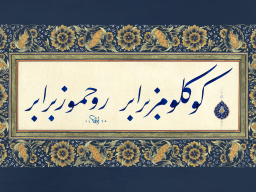 کوکلومز برابر روحموز برابر